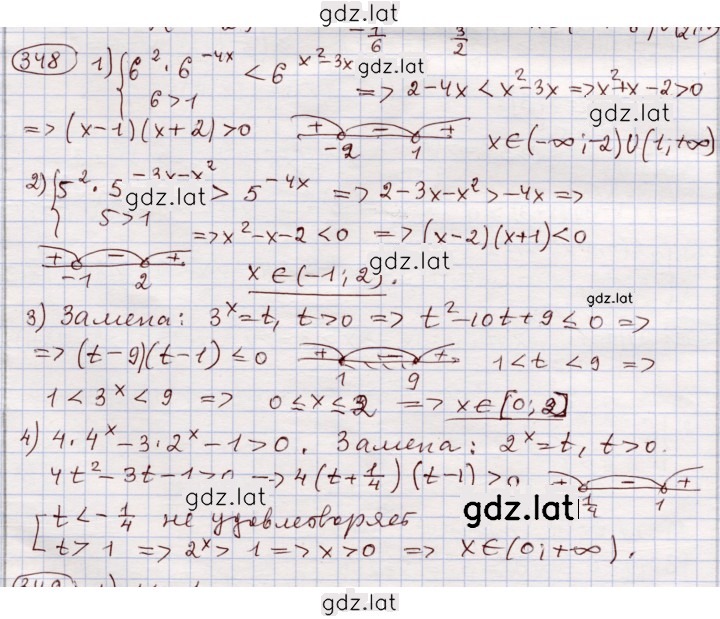 gdz.lat
-1/6 3/2
348 1) { 6² · 6^(-4x) < 6^(x²-3x)
6 > 1 => 2-4x < x²-3x => x²+x-2>0
gdz.lat
gdz.lat
=> (x-1)(x+2)>0 + -2 - 1 + x∈(-∞;-2)∪(1;+∞)
2) { 5² · 5^(-3x-x²) > 5^(-4x) => 2-3x-x²>-4x =>
gdz.lat
5>1 => x²-x-2<0 => (x-2)(x+1)<0
+ -1 - 2 + x∈(-1;2).
gdz.lat
gdz.lat
3) Замена: 3^x=t, t>0 => t²-10t+9≤0 =>
=> (t-9)(t-1)≤0 + 1 - 9 + 1<t<9 =>
1<3^x<9 => 0≤x≤2 => x∈[0;2]
4) 4·4^x-3·2^x-1>0. Замена: 2^x=t, t>0.
4t²-3t-1>0 => 4(t+1/4)(t-1)>0 + 1/4 - 1 +
gdz.lat
gdz.lat
[ t<-1/4 не удовлетворяет
t>1 => 2^x>1 => x>0 => x∈(0;+∞).
349 1)
gdz.lat